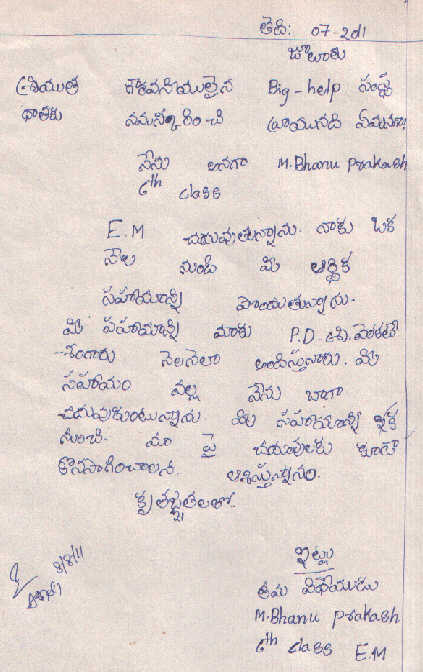 తేది: 07-2011
జూలూరు
శ్రీయుత గౌరవనీయులైన Big-help సంస్థ
దాతకు నమస్కరించి వ్రాయునది ఏమనగా
నేను అనగా M.Bhanu Prakash
6th class
E.M చదువుతున్నాను. నాకు ఒక
నెల నుండి మీ ఆర్థిక
సహాయాన్ని పొందుతున్నాను.
మీ సహాయాన్ని మాకు P.D
గారు నెలనెలా అందిస్తున్నారు. మీ
సహాయం వల్ల నేను బాగా
చదువుకుంటున్నాను. మీ సహాయాన్ని ఇక
నుంచి మా పై చదువులకు కూడా
కొనసాగించాలని ఆశిస్తున్నాను.
కృతజ్ఞతలతో.
ఇట్లు
తమ విధేయుడు
M.Bhanu Prakash
6th class E.M
3/8/11